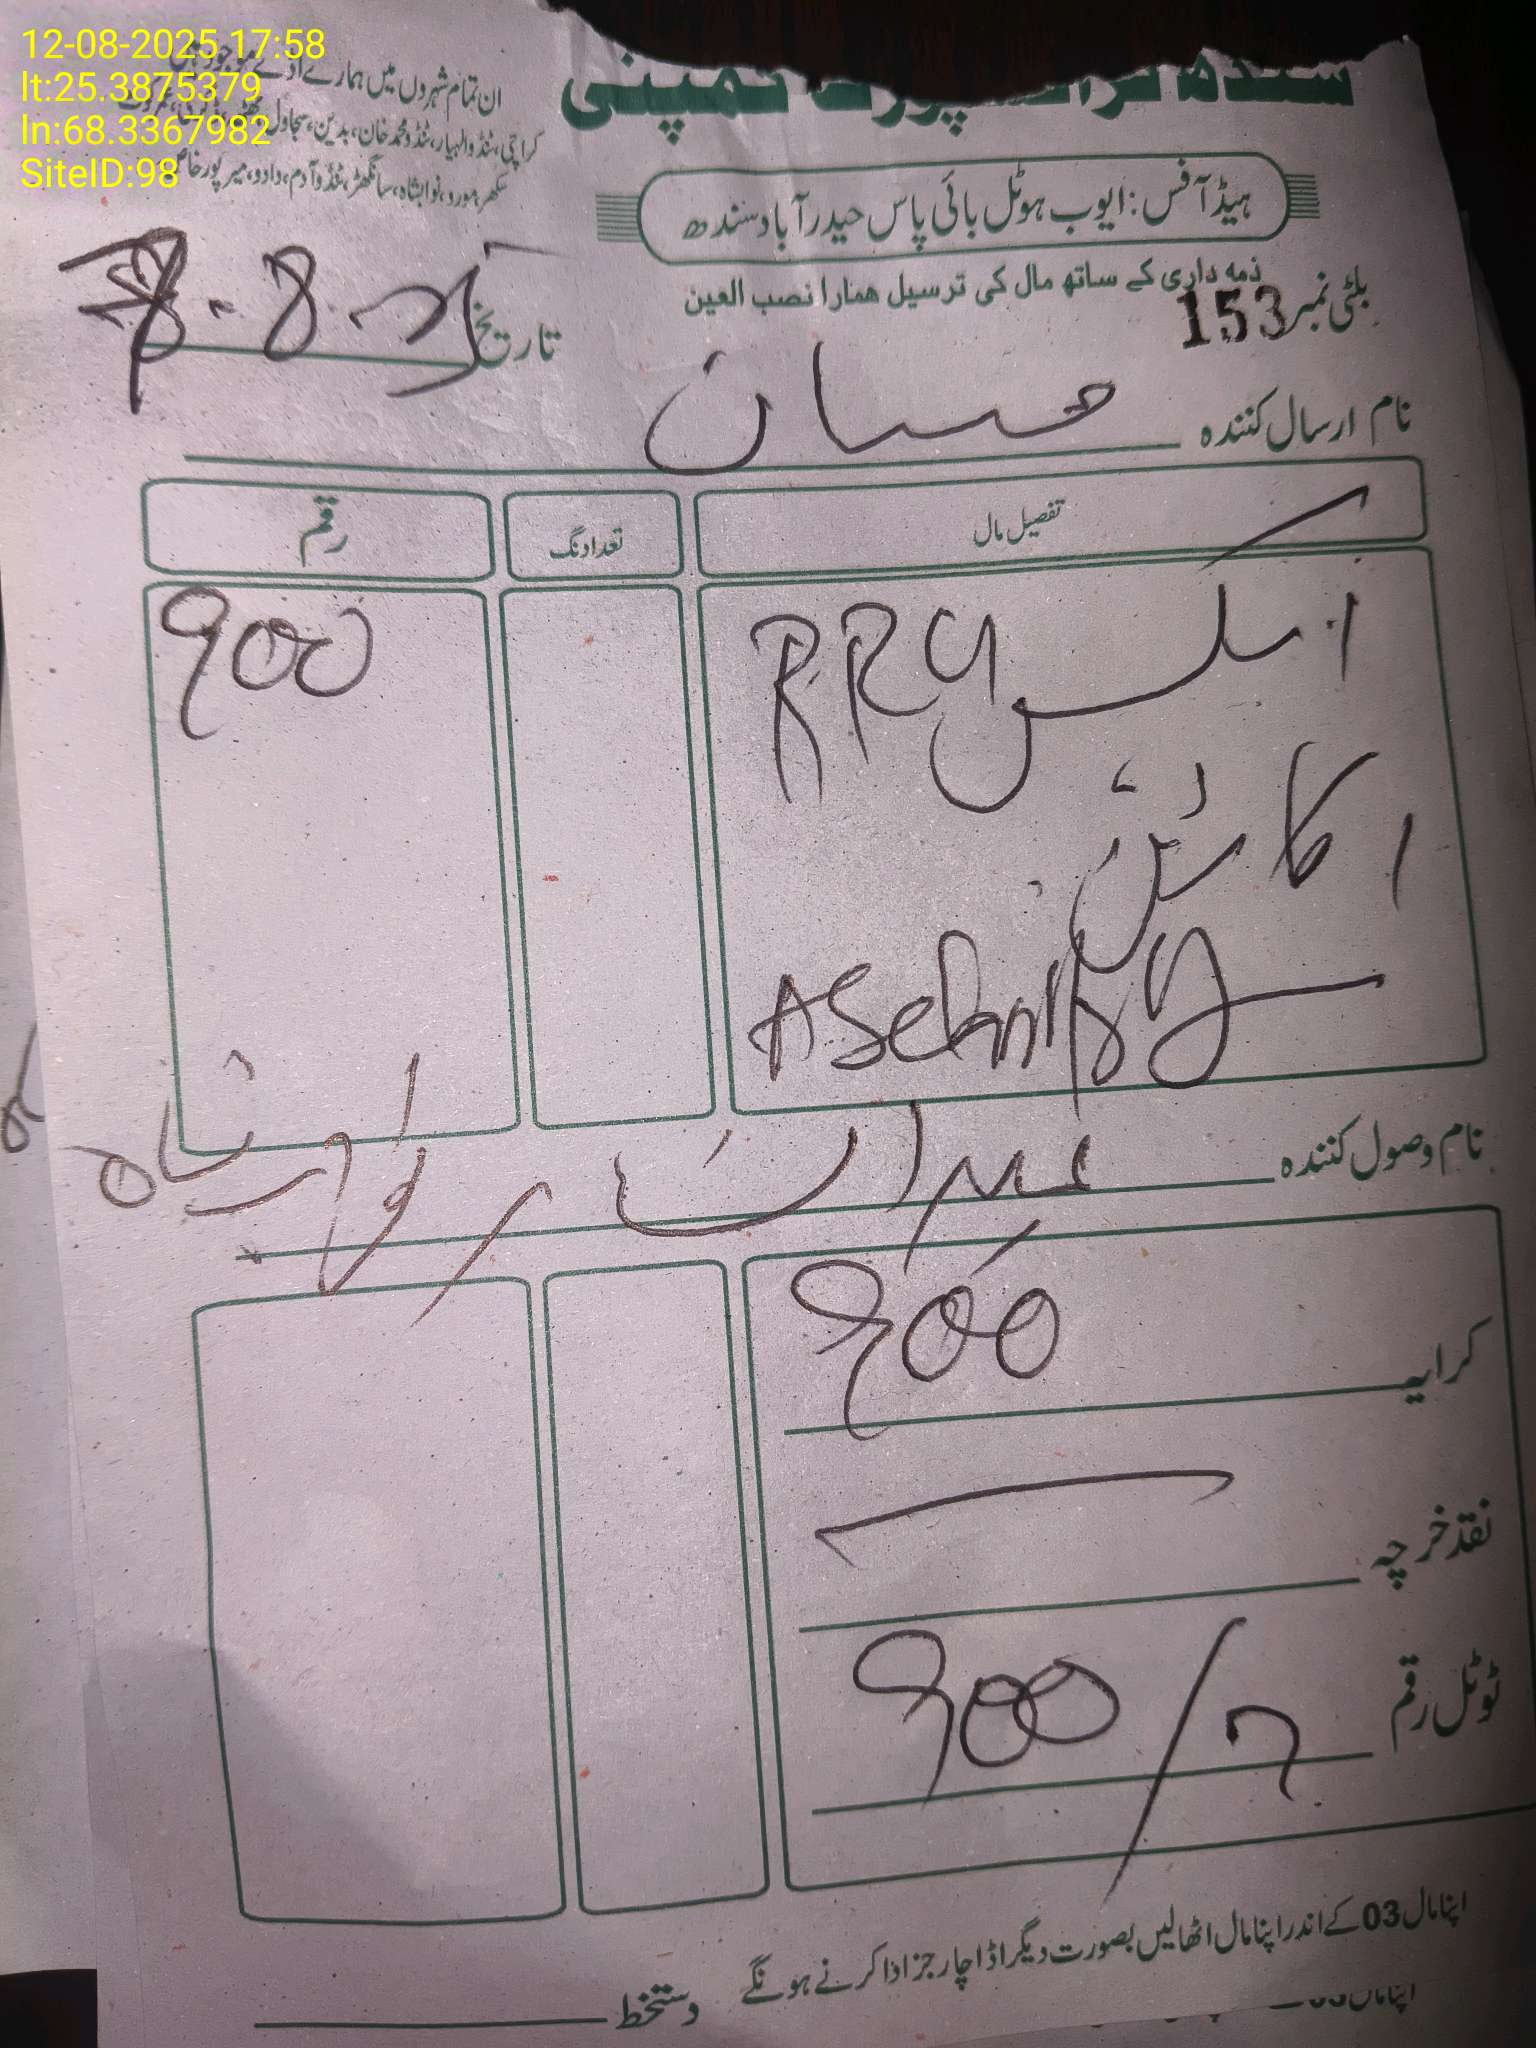 12-08-2025 17:58
lt:25.3875379
ln:68.3367982
SiteID:98
سندھ ٹرانسپورٹ کمپنی
ان تمام شہروں میں ہمارے اڈے موجود ہیں
کراچی، ٹنڈوالہیار، ٹنڈو محمد خان، بدین، سجاول
سکھر، مورو، نوابشاہ، سانگھڑ، ٹنڈو آدم، دادو، میرپور خاص
ہیڈ آفس: ایوب ہوٹل بائی پاس حیدرآباد سندھ
ذمہ داری کے ساتھ مال کی ترسیل ہمارا نصب العین
بلٹی نمبر 153
تاریخ
نام ارسال کنندہ حسان
تفصیل مال تعداد نگ رقم
RRU 900
نام وصول کنندہ نوابشاہ
کرایہ 900
نقد خرچہ
ٹوٹل رقم 900/
اپنا مال 03 کے اندر اپنا مال اٹھا لیں بصورت دیگر اڈا چارجز ادا کرنے ہونگے
دستخط